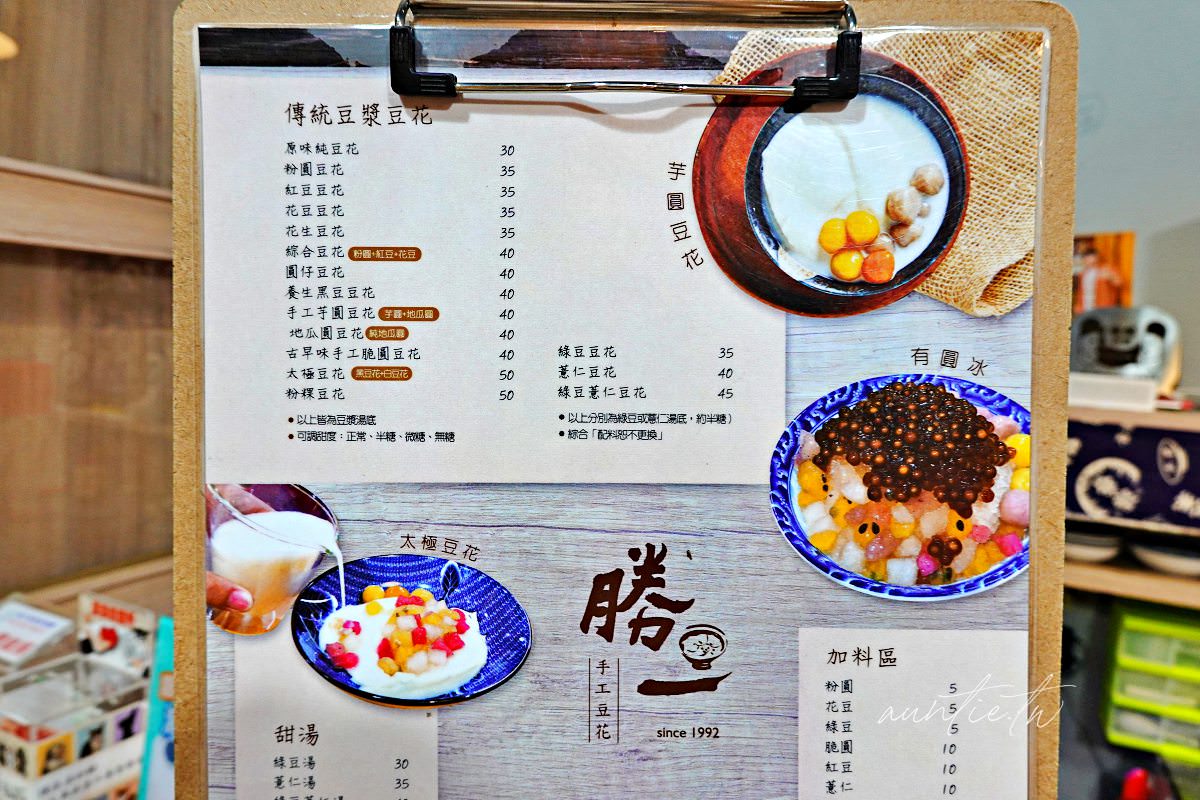 傳統豆漿豆花
原味純豆花 30
粉圓豆花 35
紅豆豆花 35
花豆豆花 35
花生豆花 35
綜合豆花 粉圓+紅豆+花豆 40
圓仔豆花 40
養生黑豆豆花 40
手工芋圓豆花 芋圓+地瓜圓 40
地瓜圓豆花 純地瓜圓 40
古早味手工脆圓豆花 40
太極豆花 黑豆花+白豆花 50
粉粿豆花 50
●以上皆為豆漿湯底
●可調甜度：正常、半糖、微糖、無糖
綠豆豆花 35
薏仁豆花 40
綠豆薏仁豆花 45
●以上分別為綠豆或薏仁湯底，約半糖）
●綜合「配料恕不更換」
芋圓豆花
有圓冰
太極豆花
勝
手工豆花
since 1992
甜湯
綠豆湯 30
薏仁湯 35
加料區
粉圓 5
花豆 5
綠豆 5
脆圓 10
紅豆 10
薏仁 10
auntie.tw